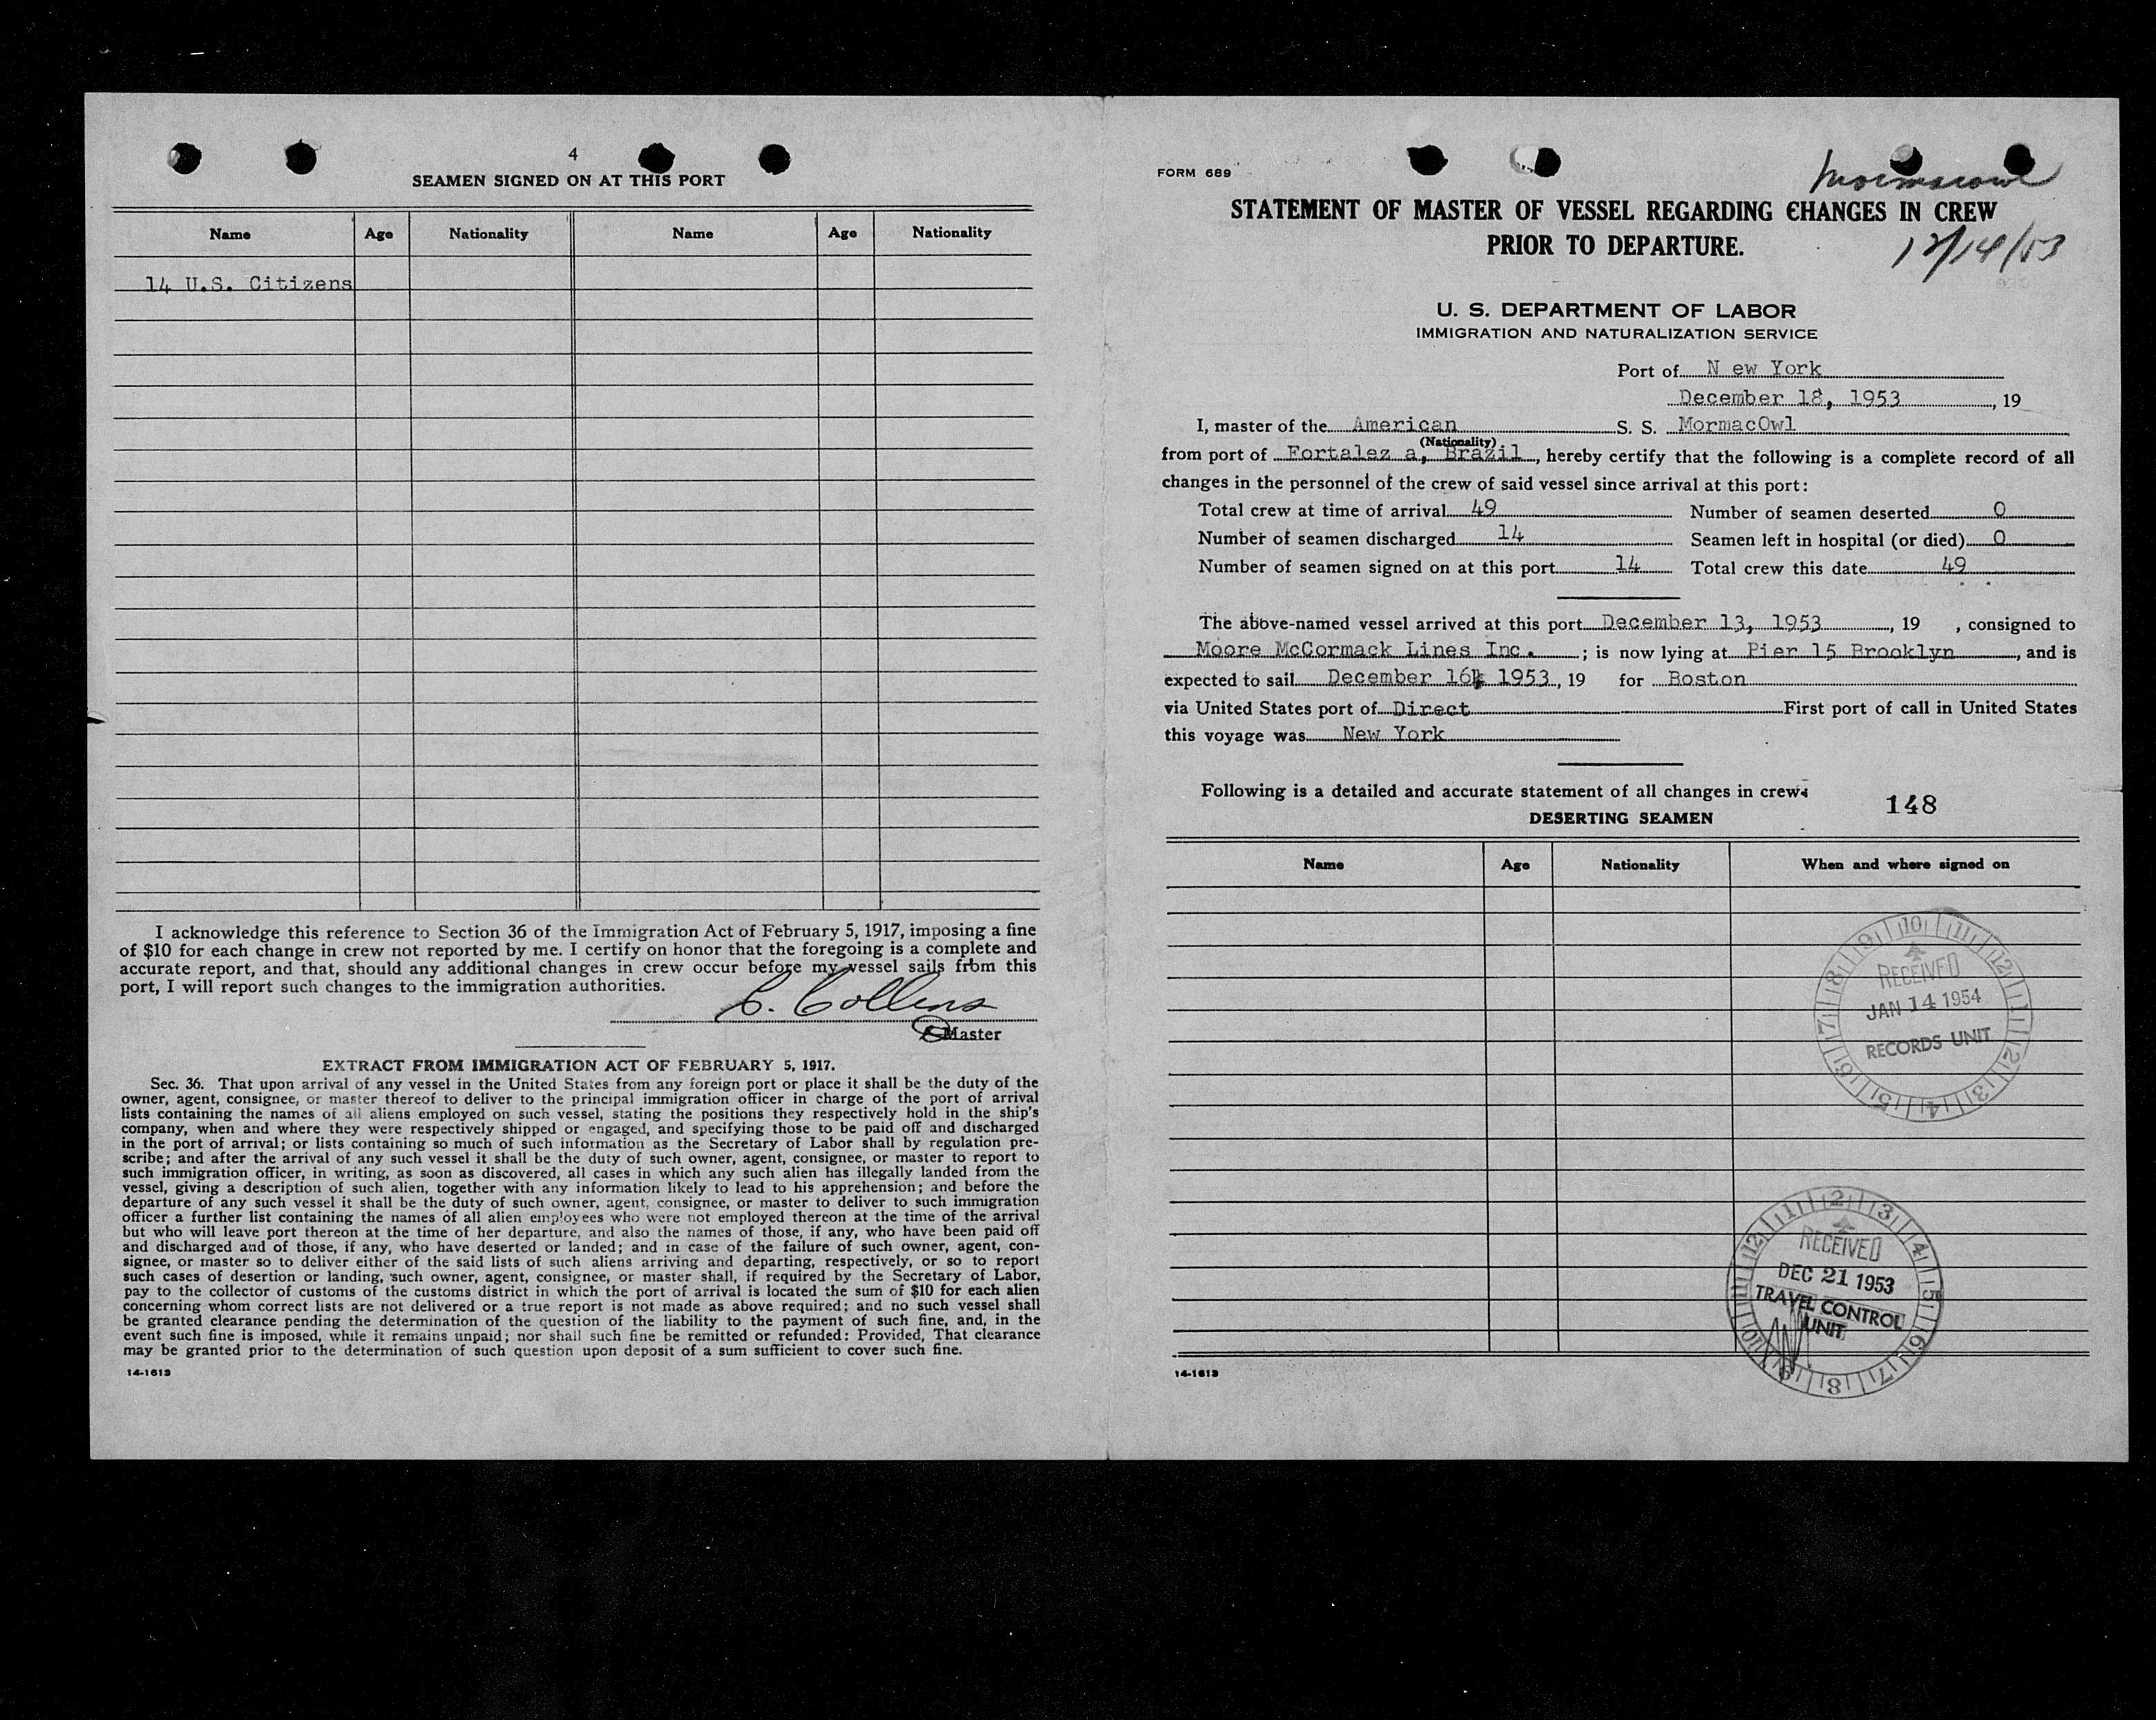 4
SEAMEN SIGNED ON AT THIS PORT
Name Age Nationality Name Age Nationality
14 U.S. Citizens
I acknowledge this reference to Section 36 of the Immigration Act of February 5, 1917, imposing a fine
of $10 for each change in crew not reported by me. I certify on honor that the foregoing is a complete and
accurate report, and that, should any additional changes in crew occur before my vessel sails from this
port, I will report such changes to the immigration authorities.
C. Collins
Master
EXTRACT FROM IMMIGRATION ACT OF FEBRUARY 5, 1917.
Sec. 36. That upon arrival of any vessel in the United States from any foreign port or place it shall be the duty of the
owner, agent, consignee, or master thereof to deliver to the principal immigration officer in charge of the port of arrival
lists containing the names of all aliens employed on such vessel, stating the positions they respectively hold in the ship's
company, when and where they were respectively shipped or engaged, and specifying those to be paid off and discharged
in the port of arrival; or lists containing so much of such information as the Secretary of Labor shall by regulation pre-
scribe; and after the arrival of any such vessel it shall be the duty of such owner, agent, consignee, or master to report to
such immigration officer, in writing, as soon as discovered, all cases in which any such alien has illegally landed from the
vessel, giving a description of such alien, together with any information likely to lead to his apprehension; and before the
departure of any such vessel it shall be the duty of such owner, agent, consignee, or master to deliver to such immigration
officer a further list containing the names of all alien employees who were not employed thereon at the time of the arrival
but who will leave port thereon at the time of her departure, and also the names of those, if any, who have been paid off
and discharged and of those, if any, who have deserted or landed; and in case of the failure of such owner, agent, con-
signee, or master so to deliver either of the said lists of such aliens arriving and departing, respectively, or so to report
such cases of desertion or landing, such owner, agent, consignee, or master shall, if required by the Secretary of Labor,
pay to the collector of customs of the customs district in which the port of arrival is located the sum of $10 for each alien
concerning whom correct lists are not delivered or a true report is not made as above required; and no such vessel shall
be granted clearance pending the determination of the question of the liability to the payment of such fine, and, in the
event such fine is imposed, while it remains unpaid; nor shall such fine be remitted or refunded: Provided, That clearance
may be granted prior to the determination of such question upon deposit of a sum sufficient to cover such fine.
14-1613
FORM 689
Mormacowl
STATEMENT OF MASTER OF VESSEL REGARDING CHANGES IN CREW
PRIOR TO DEPARTURE.
12/14/53
U. S. DEPARTMENT OF LABOR
IMMIGRATION AND NATURALIZATION SERVICE
Port of N ew York
December 18, 1953, 19
I, master of the American S. S. MormacOwl
(Nationality)
from port of Fortalez a, Brazil, hereby certify that the following is a complete record of all
changes in the personnel of the crew of said vessel since arrival at this port:
Total crew at time of arrival 49 Number of seamen deserted 0
Number of seamen discharged 14 Seamen left in hospital (or died) 0
Number of seamen signed on at this port 14 Total crew this date 49
The above-named vessel arrived at this port December 13, 1953, 19 , consigned to
Moore McCormack Lines Inc. ; is now lying at Pier 15 Brooklyn, and is
expected to sail December 16 1953, 19 for Boston
via United States port of Direct First port of call in United States
this voyage was New York
Following is a detailed and accurate statement of all changes in crew
148
DESERTING SEAMEN
Name Age Nationality When and where signed on
10 11 12 1 2 3 4 5 6 7 8 9
RECEIVED
JAN 14 1954
RECORDS UNIT
12 1 2 3 4 5 6 7 8 9 10 11
RECEIVED
DEC 21 1953
TRAVEL CONTROL
UNIT
14-1613